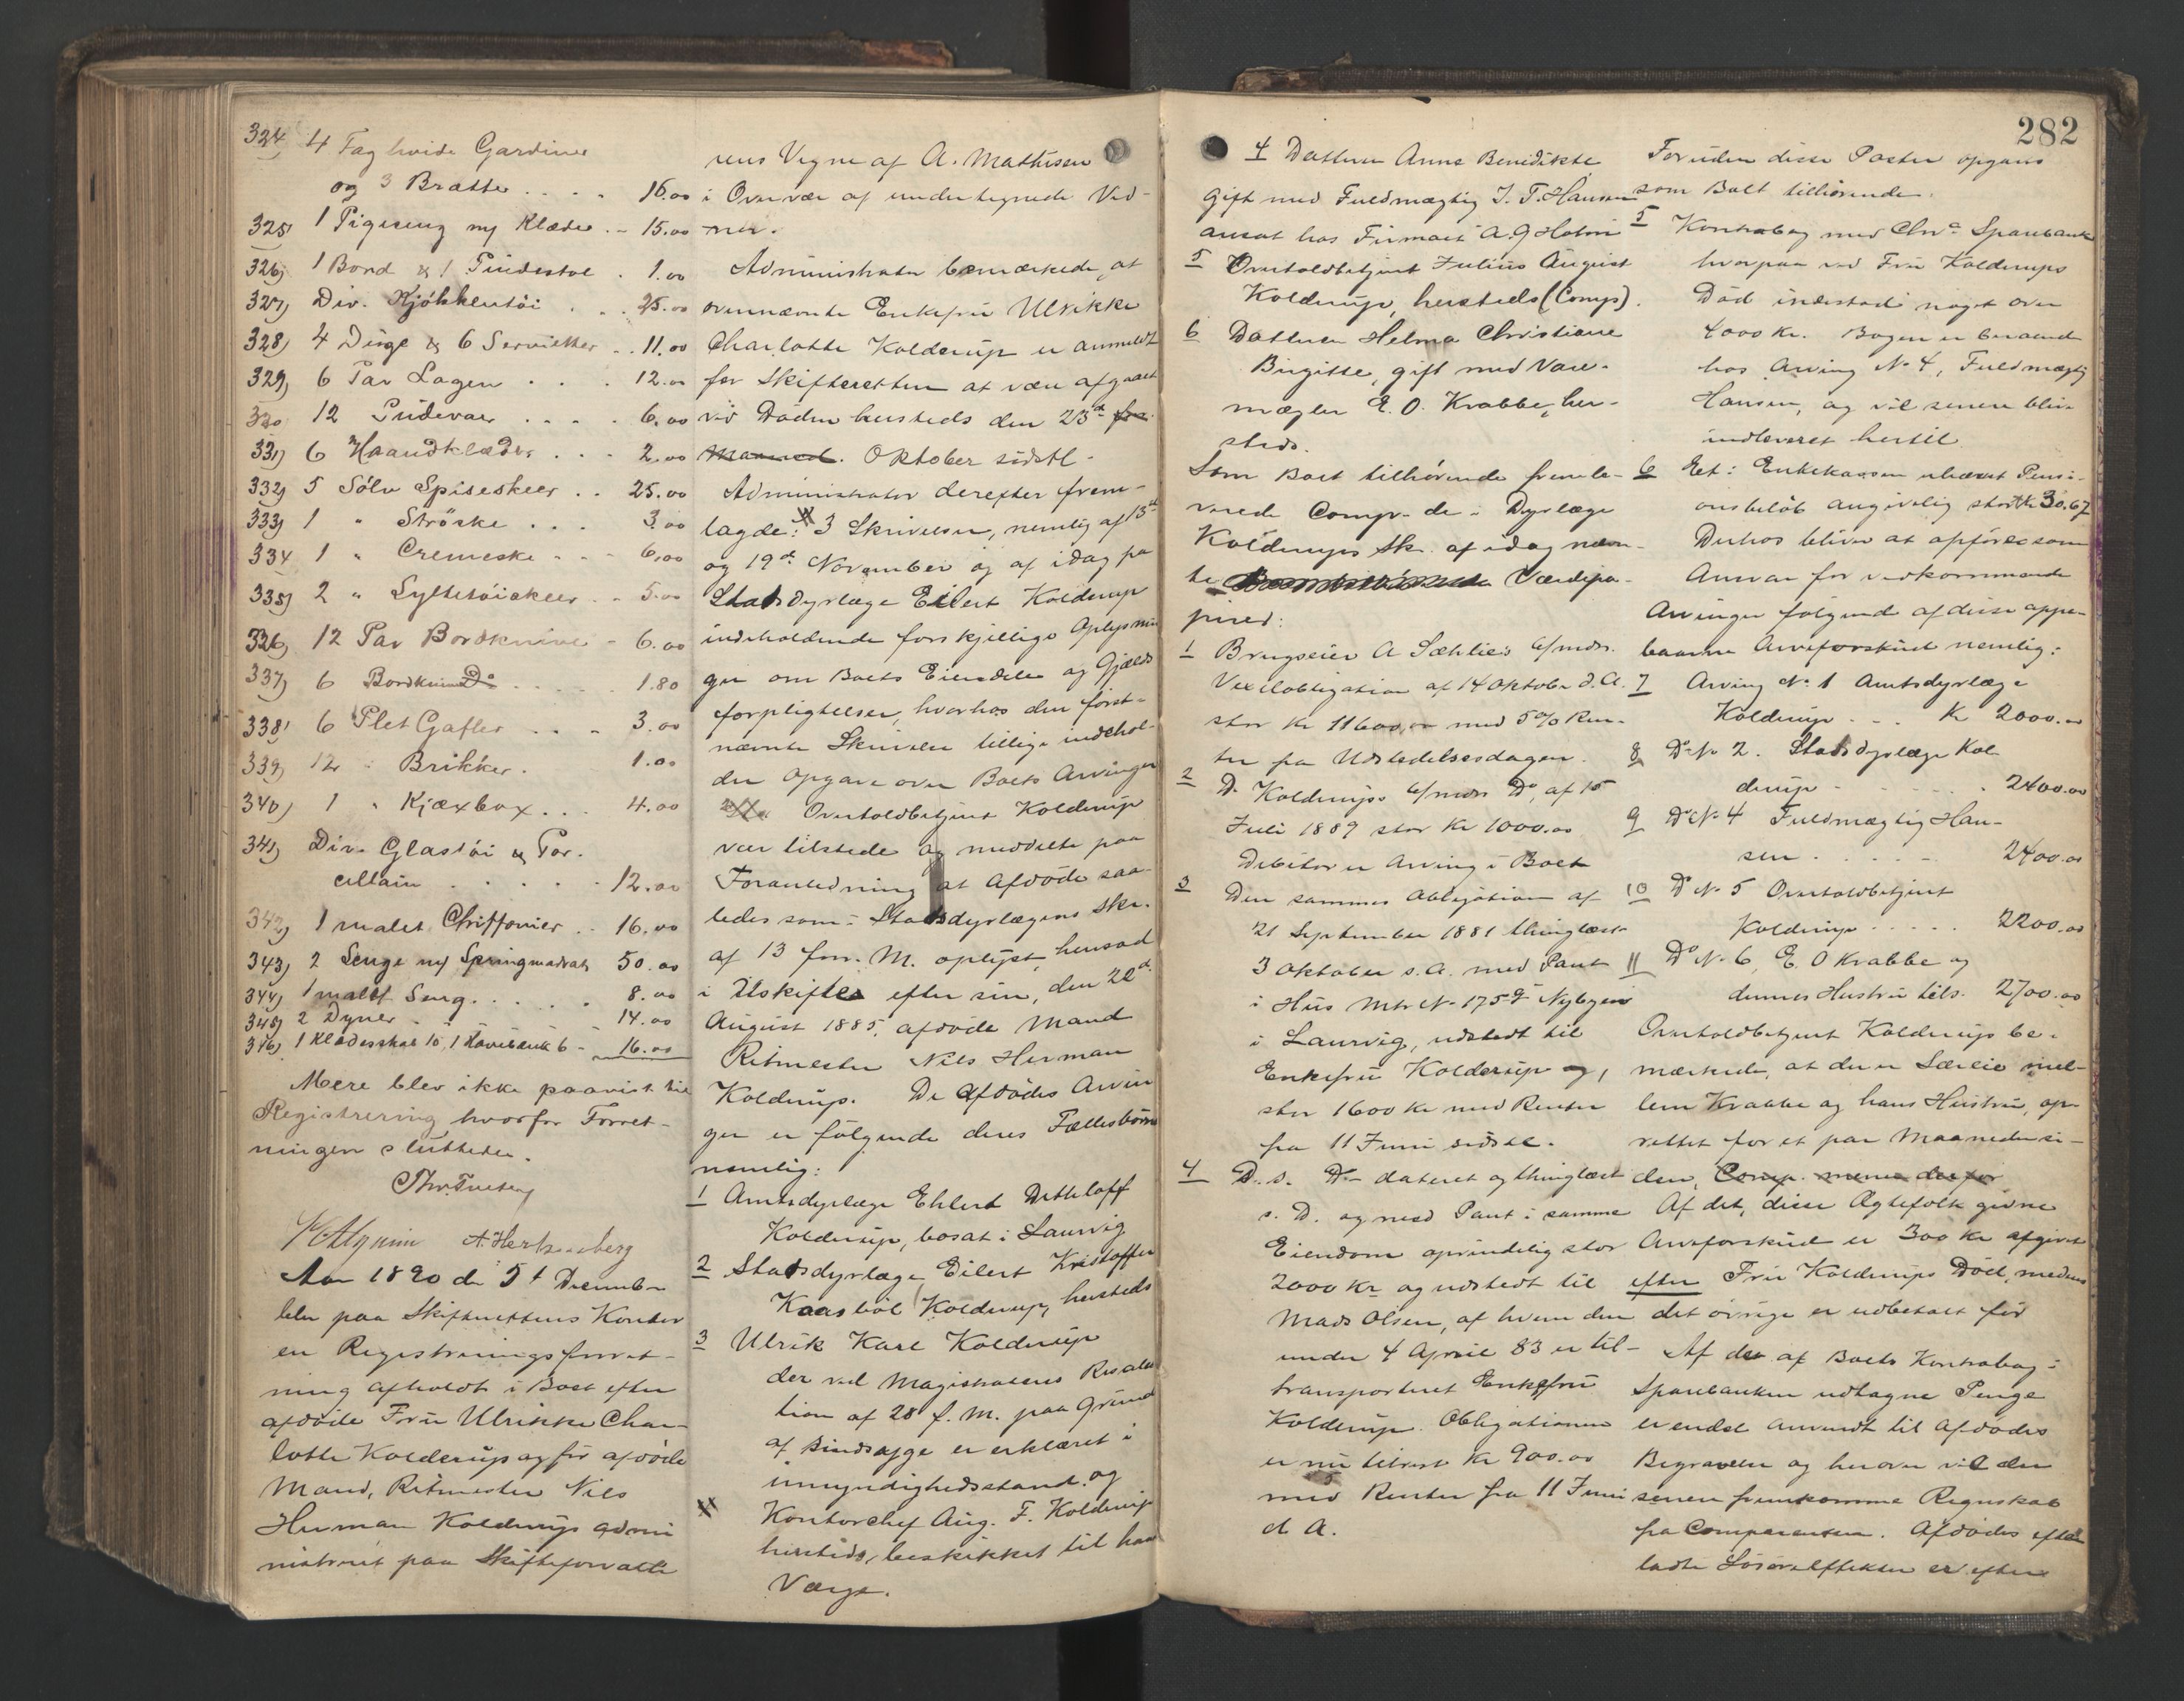 324) 4 Fag hvide Gardiner
og 3 Bratter . . . . 16.00
325) 1 Pigeseng m/ Klæder . - 15.00
326) 1 Bord & 1 Pindestol . 1.00
327) Div. Kjökkentöi . . . 25.00
328) 4 Duge & 6 Servietter . . 11.00
329) 6 Par Lagen . . . 12.00
330 12 Pudevaer . . . . 6.00
331) 6 Haandklæder . . . 2.00
332) 5 Sölv Spiseskeer . . 25.00
333) 1 " Ströske . . . 3.00
334 1 " Cremeske - - - 6.00
335) 2 " Syltetöiskeer . . 5.00
336) 12 Par Bordknive - 6.00
337) 6 Bordknive Do . . . . . 1.80
338) 6 Plet Gafler . . . 3.00
339) 12 " Brikker . 1.00
340) 1 " Kjæxbox . . . 4.00
341) Div. Glastöi & Por-
cellain . . . . . 12.00
342) 1 malet Chiffonier . - 16.00
343) 2 Senge m/ Springmadrats 50.00
344) 1 malet Seng . . . . . 8.00
345) 2 Dyner . . . 14.00
346) 1 Klædesskab 10, 1 Hövlebænk 6 - 16.00
Mere blev ikke paavist til
Registrering hvorfor Forret-
ningen sluttedes.
A. Hertzenberg
Aar 1890 de 5t Decemb-
blev paa Skifterettens Kontor
en Registreringsforret-
ning afholdt i Boet efter
afdöde Frue Ulrikke Char-
lotte Kolderup og för afdöde
Mand, Ritmester Nils
Herman Kolderup admi
nistreret paa Skifteforvalte
rens Vegne af A. Mathisen
i Overvær af undertegnede Vid-
ner.
Administrator bemærkede, at
ovennævnte Enkefru Ulrikke
Charlotte Kolderup er anmeldt
for Skifteretten at være afgaaet
ved Döden hersteds den 23d for.
Maaned. Oktober sidstl.
Administrator derefter frem-
lagde: 3 Skrivelser, nemlig af 13de
og 19de November og af idag fra
Stadsdyrlæge Eilert Kolderup
indeholdende forskjellige Oplysnin
ger om Boets Eiendele og Gjælds
forpligtelser, hvorhos den först-
nævnte Skrivelse tillige indehol-
der Opgave over Boets Arvinger
Overtoldbetjent Kolderup
var tilstede og meddelte paa
Foranledning at Afdöde saa-
ledes som i Stadsdyrlægens Skr.
af 13 forr. M. oplyst, hensad
i Uskiftet efter sin, den 22d
August 1885, afdöde Mand
Ritmester Nils Herman
Kolderup. De Afdödes Arvin
ger er fölgende deres Fællesbörn
nemlig:
1 Amtsdyrlæge Ehlert Dethloff
Kolderup, bosat i Laurvig
2 Stadsdyrlæge Eilert Kristoffer
Kaasböl Kolderup, hersteds
3 Ulrik Karl Kolderup
der ved Magistratens Resolu
tion af 28 f. M. paa Grund
af Sindssyge er erklæret i
umyndighedsstand og
Kontorchef Aug. F. Kolderup
hersteds, beskikket til hans
Værge.
282
4 Datteren Anna Benedikte
gift med Fuldmægtig J. T. Hansen
ansat hos Firmaet A. G Holm
5 Overtoldbetjent Julius August
Kolderup, hersteds (Comp).
6 Datteren Helma Christiane
Birgitte, gift med Vare-
mægler E. O. Krabbe, her-
steds.
Som Boet tilhörende fremle-
verede Comp. de i Dyrlæge
Kolderups Skr. af idag nævn-
te Værdipa-
pirer:
1 Brugseier A Sæhlies 6/mdrs.
Vexelobligation af 14 Oktober d. A.
stor Kr 11600,00 med 5% Ren-
ter fra Udstedelsesdagen.
2 D. Kolderups 6/mdrs Do, af 15
Juli 1889 stor Kr 1000.00
Debitor er Arving i Boet
3 Den sammes Obligation af
21 September 1881 thinglæst
3 Oktober s. A. med Pant
i Hus Mtr No 175 Nybyen
i Laurvig, udstedt til
Enkefru Kolderup og,
stor 1600 Kr med Renter
fra 11 Juni sidstl.
4 D. s. Do dateret og thinglæst
s. D. og med Pant i samme
Eiendom oprindelig stor
2000 Kr og udstedt til
Mads Olsen, af hvem den
under 4 April 83 er til-
transporteret Enkefru
Kolderup. Obligationen
er nu tilrest Kr 900.00
med Renter fra 11 Juni
d A.
Foruden disse Poster opgaves
som Boet tilhörende.
5 Kontrabog med Chra Sparebank
hvorpaa ved Fru Kolderups
Död indestod noget over
4000 Kr. Bogen er beroende
hos Arving No 4, Fuldmægtig
Hansen, og vil senere blive
indleveret hertil
6 Et i Enkekassen uhævet Pensi-
onsbelöb angivelig stort Kr 30.67
Derhos bliver at opföres som
Ansvar for vedkommende
Arvinger fölgende af disse oppe-
baarne Arveforskud nemlig:
7 Arving No 1 Amtsdyrlæge
Kolderup . . . Kr 2000.00
8 Do No 2. Stadsdyrlæge Kol
derup - . . . . . 2400.00
9 Do No 4 Fuldmægtig Han-
sen . . . . . 2400.00
10 Do No 5 Overtoldbetjent
Kolderup . . . . . 2200.00
11 Do No 6, E. O Krabbe og
dennes Hustru tils. 2700.00
Overtoldbetjent Kolderup be-
mærkede, at der er Særeie mel-
lem Krabbe og hans Hustru, op-
rettet for et par Maaneder si-
den, Comp. mener derfor
Af det, disse Ægtefolk givne
Arveforskud er 300 Kr afgivet
efter Fru Kolderups Död, medens
det övrige er udbetalt för
Af de af Boets Kontrabog i
Sparebanken udtagne Penge
er endel anvendt til Afdödes
Begravelse og herover vil der
senere fremkomme Regnskab
fra Comparenten. Afdödes efter
ladte Lösöreeffekter er efter